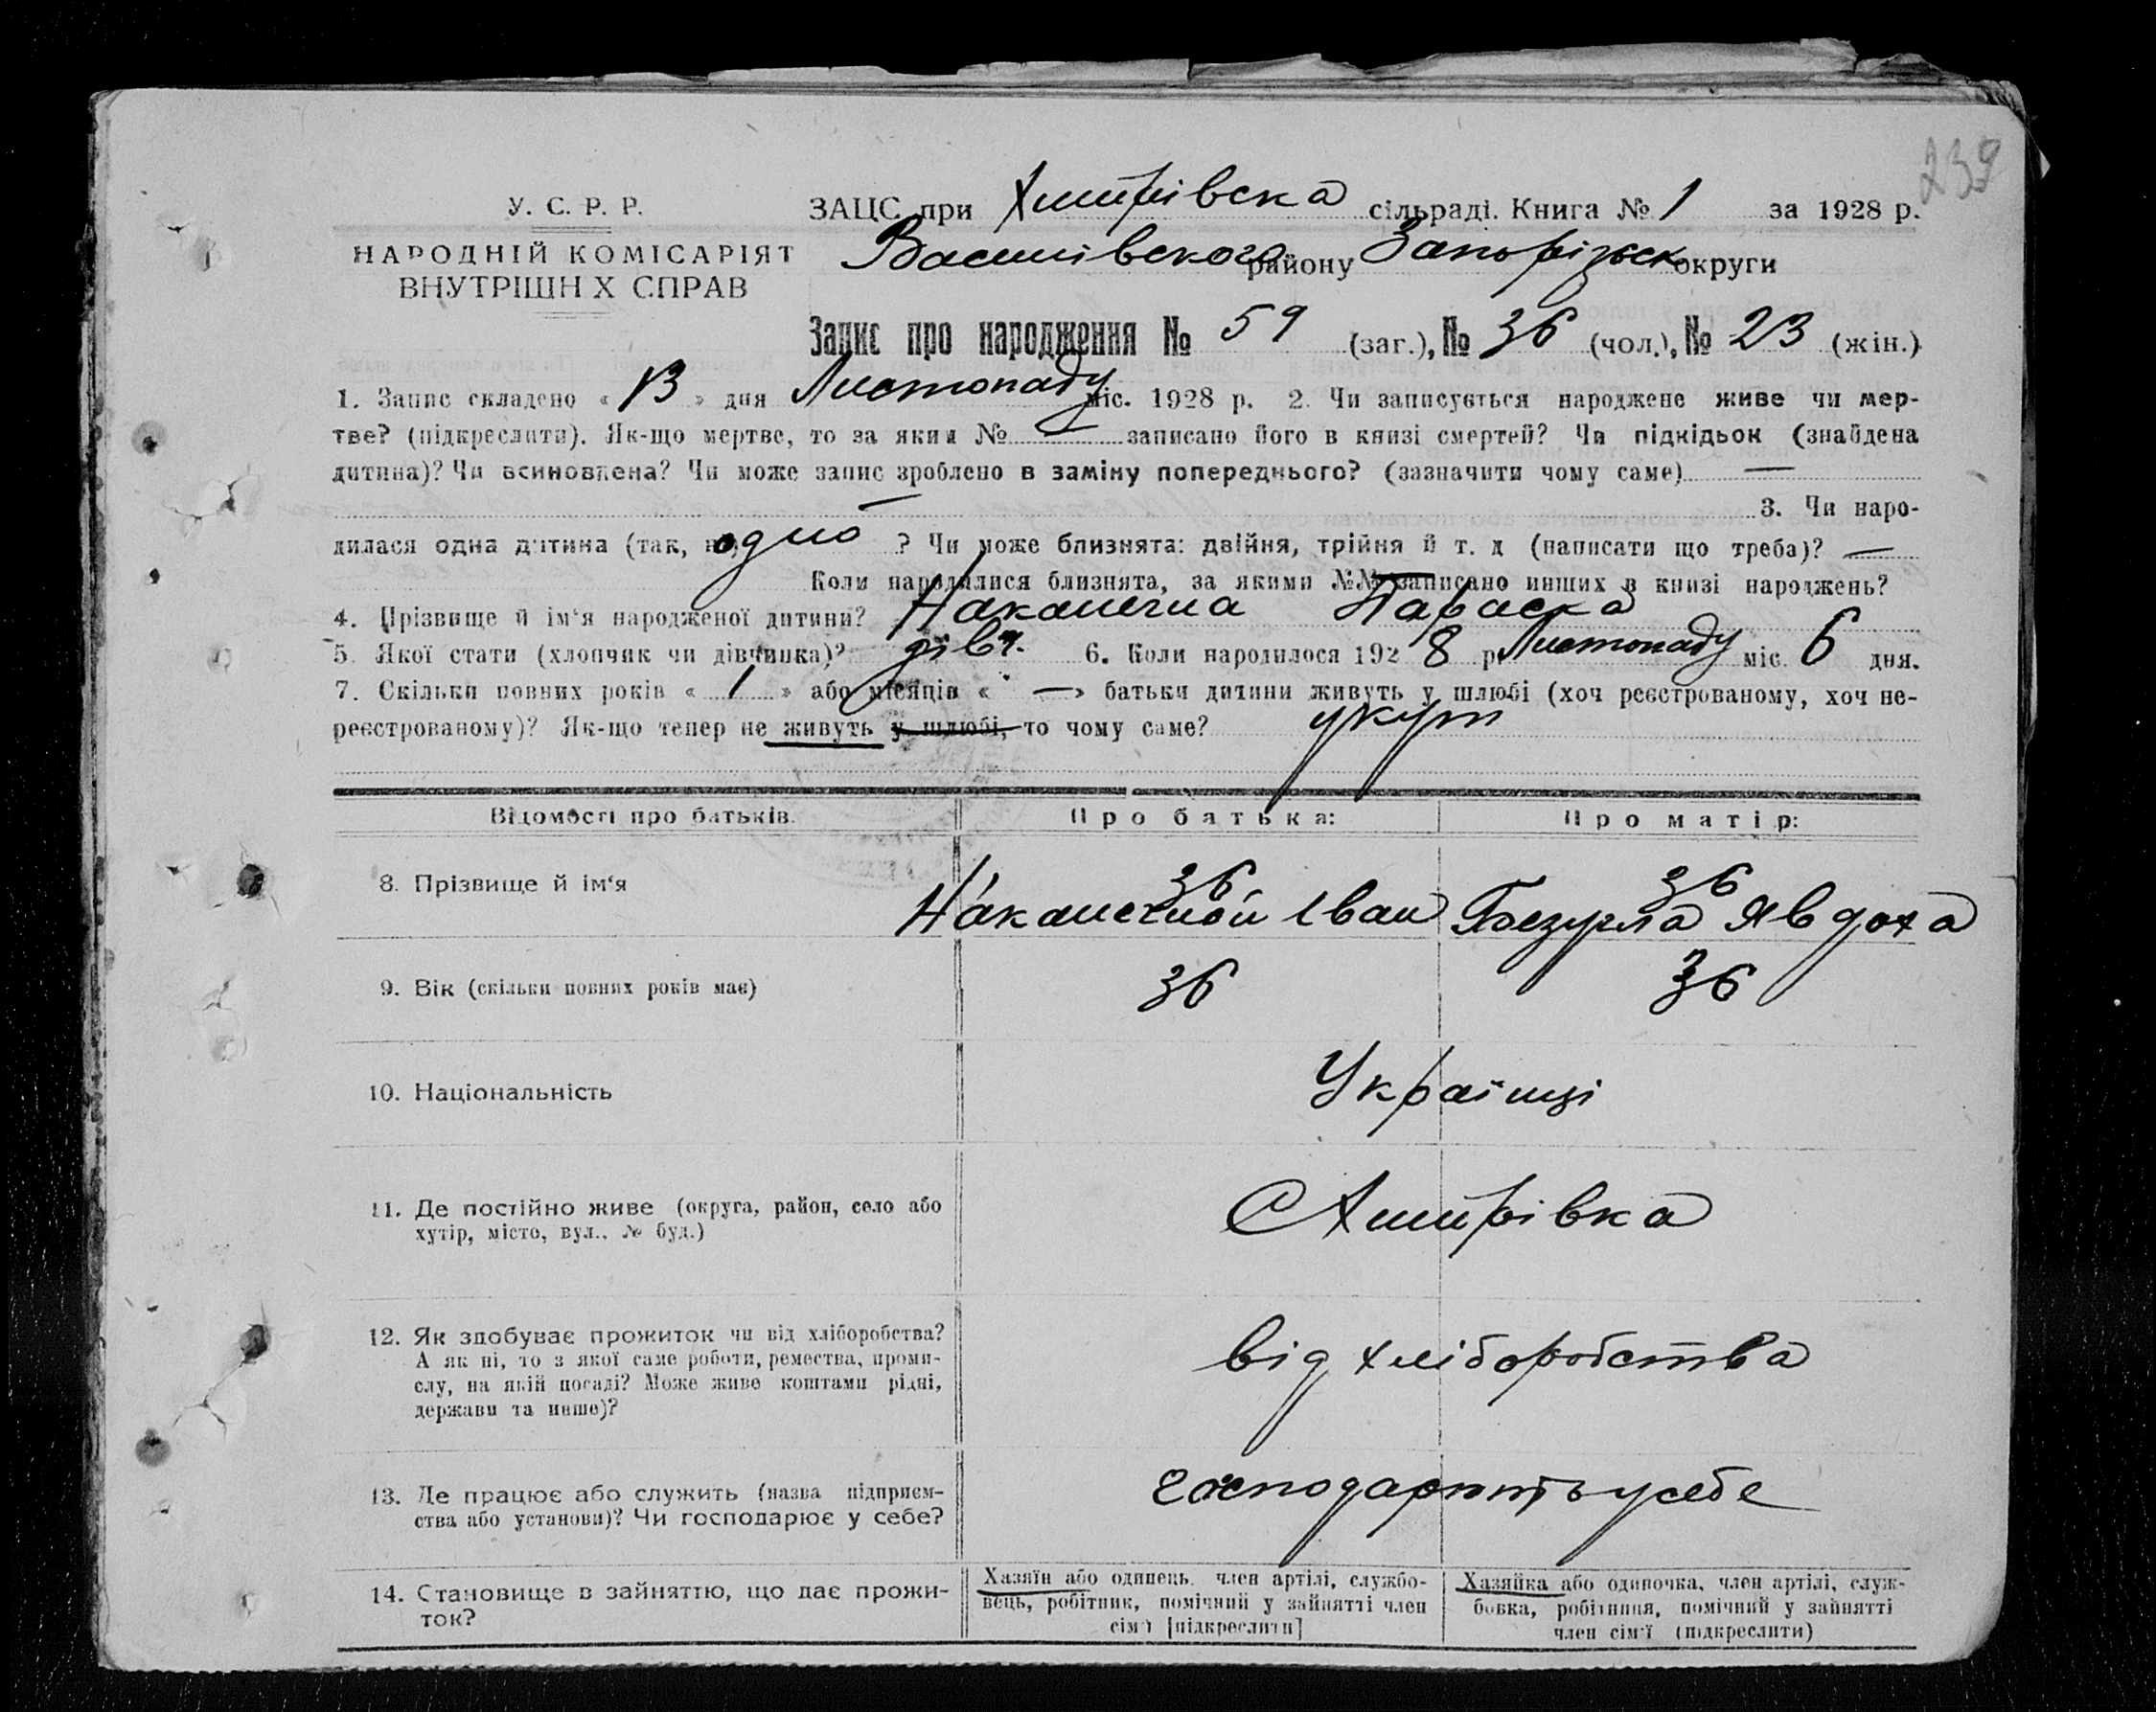 239
У. С. Р. Р.
НАРОДНІЙ КОМІСАРІЯТ
ВНУТРІШН Х СПРАВ
ЗАЦС при сільраді. Книга № 1 за 1928 р.
району Запоріжск округи
Запис про народження № 59 (заг.), № 36 (чол.), № 23 (жін.)
1. Запис складено « 13 » дня Листопаду міс. 1928 р. 2. Чи записується народжене живе чи мер-
тве? (підкреслити). Як-що мертве, то за яким № — записано його в книзі смертей? Чи підкідьок (знайдена
дитина)? Чи всиновлена? Чи може запис зроблено в заміну попереднього? (зазначити чому саме) —
— 3. Чи наро-
дилася одна дитина (так, ні) одно ? Чи може близнята: двійня, трійня й т. д (написати що треба)? —
Коли народилися близнята, за якими №№ записано инших в книзі народжень? —
4. Прізвище й ім'я народженої дитини? Параска
5. Якої стати (хлопчик чи дівчинка)? дівч. 6. Коли народилося 192 8 р. Листопаду міс. 6 дня.
7. Скільки повних років « 1 » або місяців « — » батьки дитини живуть у шлюбі (хоч реєстрованому, хоч не-
реєстрованому)? Як-що тепер не живуть у шлюбі, то чому саме? укупі
Відомості про батьків.
Про батька:
Про матір:
8. Прізвище й ім'я
36
Іван
36
Явдоха
9. Вік (скільки повних років має)
36
36
10. Національність
Українці
11. Де постійно живе (округа, район, село або
хутір, місто, вул., № буд.)
12. Як здобуває прожиток чи від хліборобства?
А як ні, то з якої саме роботи, ремества, проми-
слу, на якій посаді? Може живе коштами рідні,
держави та инше)?
від хліборобства
13. Де працює або служить (назва підприєм-
ства або установи)? Чи господарює у себе?
господарють у себе
14. Становище в зайняттю, що дає прожи-
ток?
Хазяїн або одинець, член артілі, службо-
вець, робітник, помічний у зайнятті член
сім'ї [підкреслити]
Хазяйка або одиночка, член артілі, служ-
бовка, робітниця, помічний у зайнятті
член сім'ї (підкреслити)